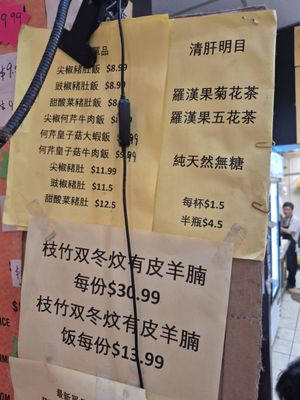 $9.99
品
尖椒豬肚飯 $8.99
豉椒豬肚飯 $8.99
甜酸菜豬肚飯 $8.
尖椒何芹牛肉飯
何芹皇子菇大蝦飯
何芹皇子菇牛肉飯 $9.99
尖椒豬肚 $11.99
豉椒豬肚 $11.5
甜酸菜豬肚 $12.5
清肝明目
羅漢果菊花茶
羅漢果五花茶
純天然無糖
每杯$1.5
半瓶$4.5
枝竹双冬炆有皮羊腩
每份$30.99
枝竹双冬炆有皮羊腩
饭每份$13.99